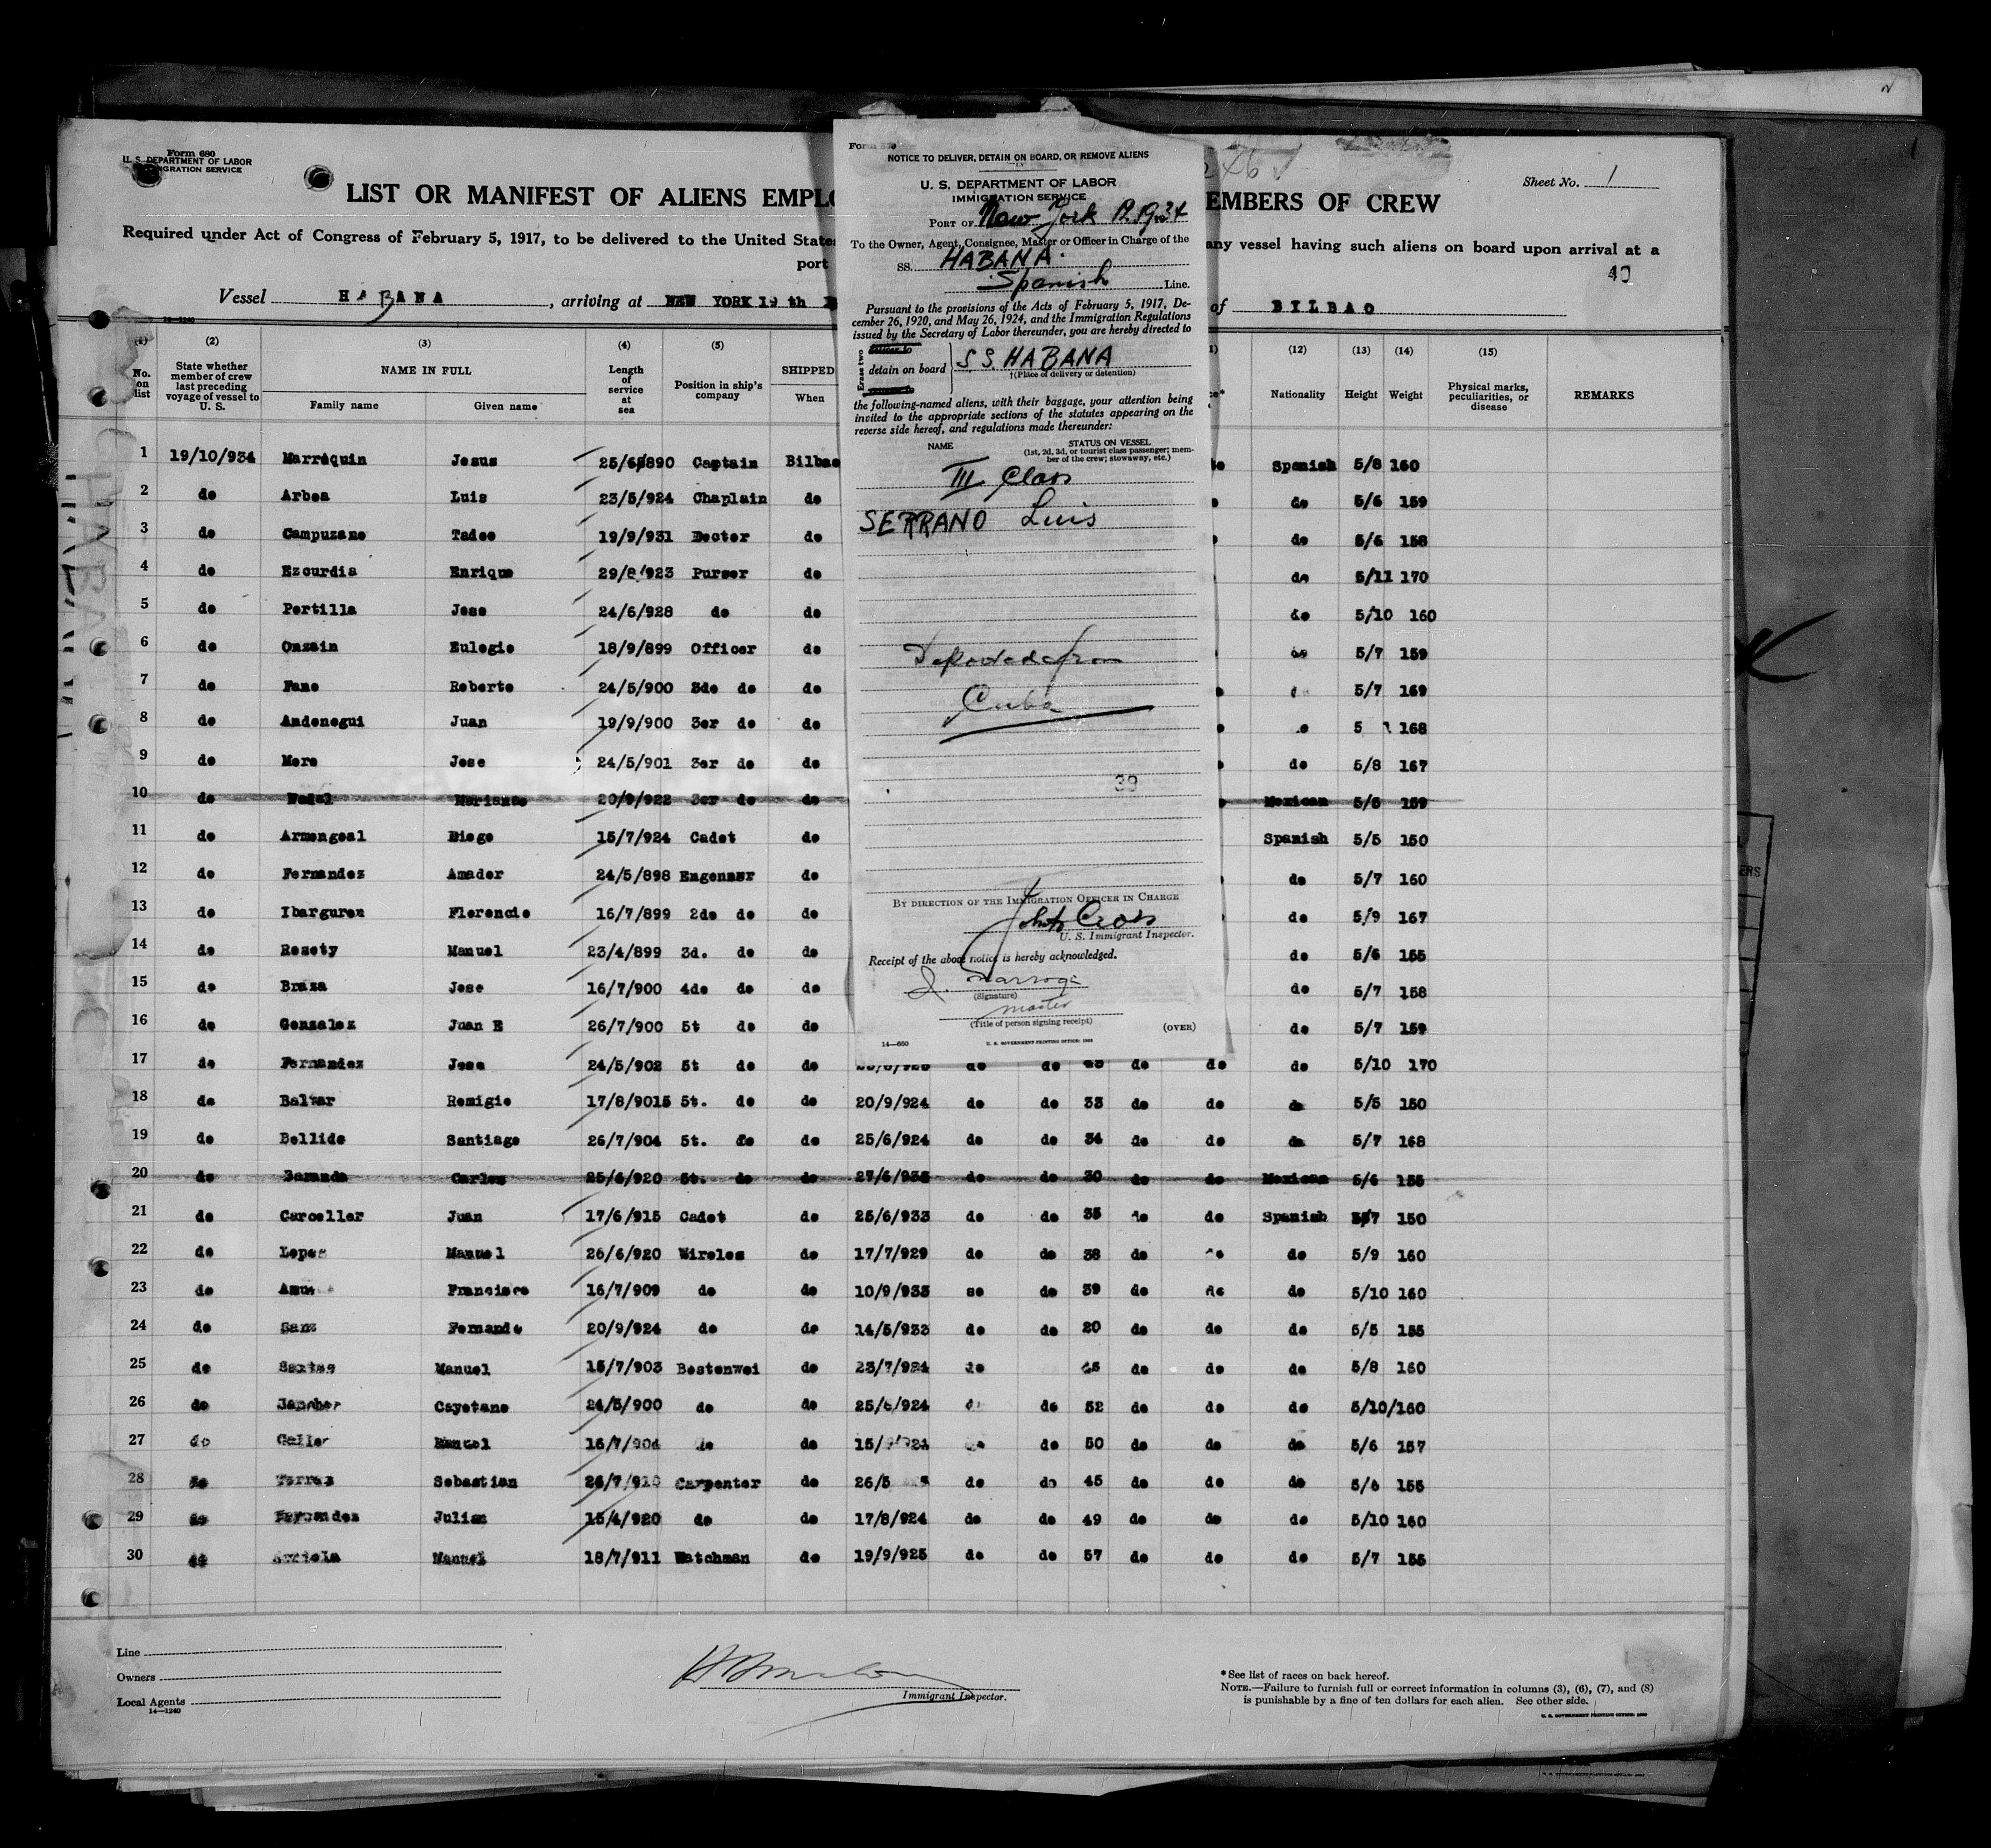 Form 680
U. S. DEPARTMENT OF LABOR
IMMIGRATION SERVICE
LIST OR MANIFEST OF ALIENS EMPLO
EMBERS OF CREW
Sheet No. 1
Required under Act of Congress of February 5, 1917, to be delivered to the United State
any vessel having such aliens on board upon arrival at a
port
40
Vessel HABANA, arriving at NEW YORK 19 th
of BILBAO
(2) (3) (4) (5) (12) (13) (14) (15)
No. on list
State whether member of crew last preceding voyage of vessel to U. S.
NAME IN FULL
Family name Given name
Length of service at sea
Position in ship's company
SHIPPED
When
Nationality Height Weight
Physical marks, peculiarities, or disease
REMARKS
1 19/10/934 Marrequin Jesus Captain Bilbao Spanish 5/8 160
2 do Arbea Luis 23/5/924 Chaplain do do 5/6 159
3 do Campuzano Tadeo 19/9/931 Doctor do do 5/6 158
4 do Ezcurdia Enrique Purser do do 5/11 170
5 do Portilla Jose 24/6/928 do do do 5/10 160
6 do Onzain Eulogio 18/9/899 Officer do do 5/7 159
7 do Fano Roberto 24/5/900 3do do do 5/7 169
8 do Andonegui Juan 19/9/900 3er do do 5 168
9 do More Jose 24/5/901 3er do do do 5/8 167
10 do Nadal Mariano 20/9/922 3er do do Mexican 5/5 159
11 do Armengoal Diego 15/7/924 Cadet do Spanish 5/5 150
12 do Fernandez Amador 24/5/898 do do 5/7 160
13 do Ibarguren Florencio 16/7/899 2do do do do 5/9 167
14 do Rosety Manuel 23/4/899 3d. do do do 5/6 155
15 do Braza Jose 16/7/900 4do do do do 5/7 158
16 do Gonzalez Juan E 26/7/900 5t do do do 5/7 159
17 do Fernandez Jose 24/5/902 5t do do do do do do do 5/10 170
18 do Baltar Remigio 17/8/9015 5t. do do 20/9/924 do do 33 do do do 5/5 150
19 do Bellido Santiago 26/7/904 5t. do do 25/6/924 do do 34 do do do 5/7 168
20 do Baranda Carlos 25/6/920 5t. do do do do 30 do do Mexican 5/6 155
21 do Carceller Juan 17/6/915 Cadet do 25/6/933 do do 35 do do Spanish 150
22 do Lopez Manuel 26/6/920 Wireles do 17/7/929 do do 38 do do do 5/9 160
23 do Francisco 16/7/909 do do 10/9/933 so do 39 do do do 5/10 160
24 do Sanz Fernando 20/9/924 do do 14/5/933 do do 20 do do do 5/5 155
25 do Santos Manuel 15/7/903 Bostenwei do 23/7/924 do do do do 5/8 160
26 do Cayetano 24/5/900 do do 25/6/924 do 52 do do do 5/10/160
27 do Manuel 16/7/904 do do do 50 do do do 5/6 157
28 do Sebastian Carpenter do 26/5 do do 45 do do do 5/6 155
29 do Fernandez Julian 15/4/920 do do 17/8/924 do do 49 do do do 5/10 160
30 Manuel 18/7/911 Watchman do 19/9/925 do do 57 do do do 5/7 155
NOTICE TO DELIVER, DETAIN ON BOARD, OR REMOVE ALIENS
U. S. DEPARTMENT OF LABOR
IMMIGRATION SERVICE
PORT OF New York 1934
To the Owner, Agent, Consignee, Master or Officer in Charge of the
SS. HABANA
Spanish Line.
Pursuant to the provisions of the Acts of February 5, 1917, De-
cember 26, 1920, and May 26, 1924, and the Immigration Regulations
issued by the Secretary of Labor thereunder, you are hereby directed to
Erase two
deliver to
detain on board
S.S. HABANA
†(Place of delivery or detention)
the following-named aliens, with their baggage, your attention being
invited to the appropriate sections of the statutes appearing on the
reverse side hereof, and regulations made thereunder:
NAME
STATUS ON VESSEL
(1st, 2d, 3d, or tourist class passenger; mem-
ber of the crew; stowaway, etc.)
III Class
SERRANO Luis
Deported from
Cuba
39
BY DIRECTION OF THE IMMIGRATION OFFICER IN CHARGE
U. S. Immigrant Inspector.
Receipt of the above notice is hereby acknowledged.
(Signature)
master
(Title of person signing receipt)
(OVER)
14—660
U. S. GOVERNMENT PRINTING OFFICE: 1933
Line
Owners
Local Agents
14—1240
Immigrant Inspector.
*See list of races on back hereof.
NOTE.—Failure to furnish full or correct information in columns (3), (6), (7), and (8)
is punishable by a fine of ten dollars for each alien. See other side.